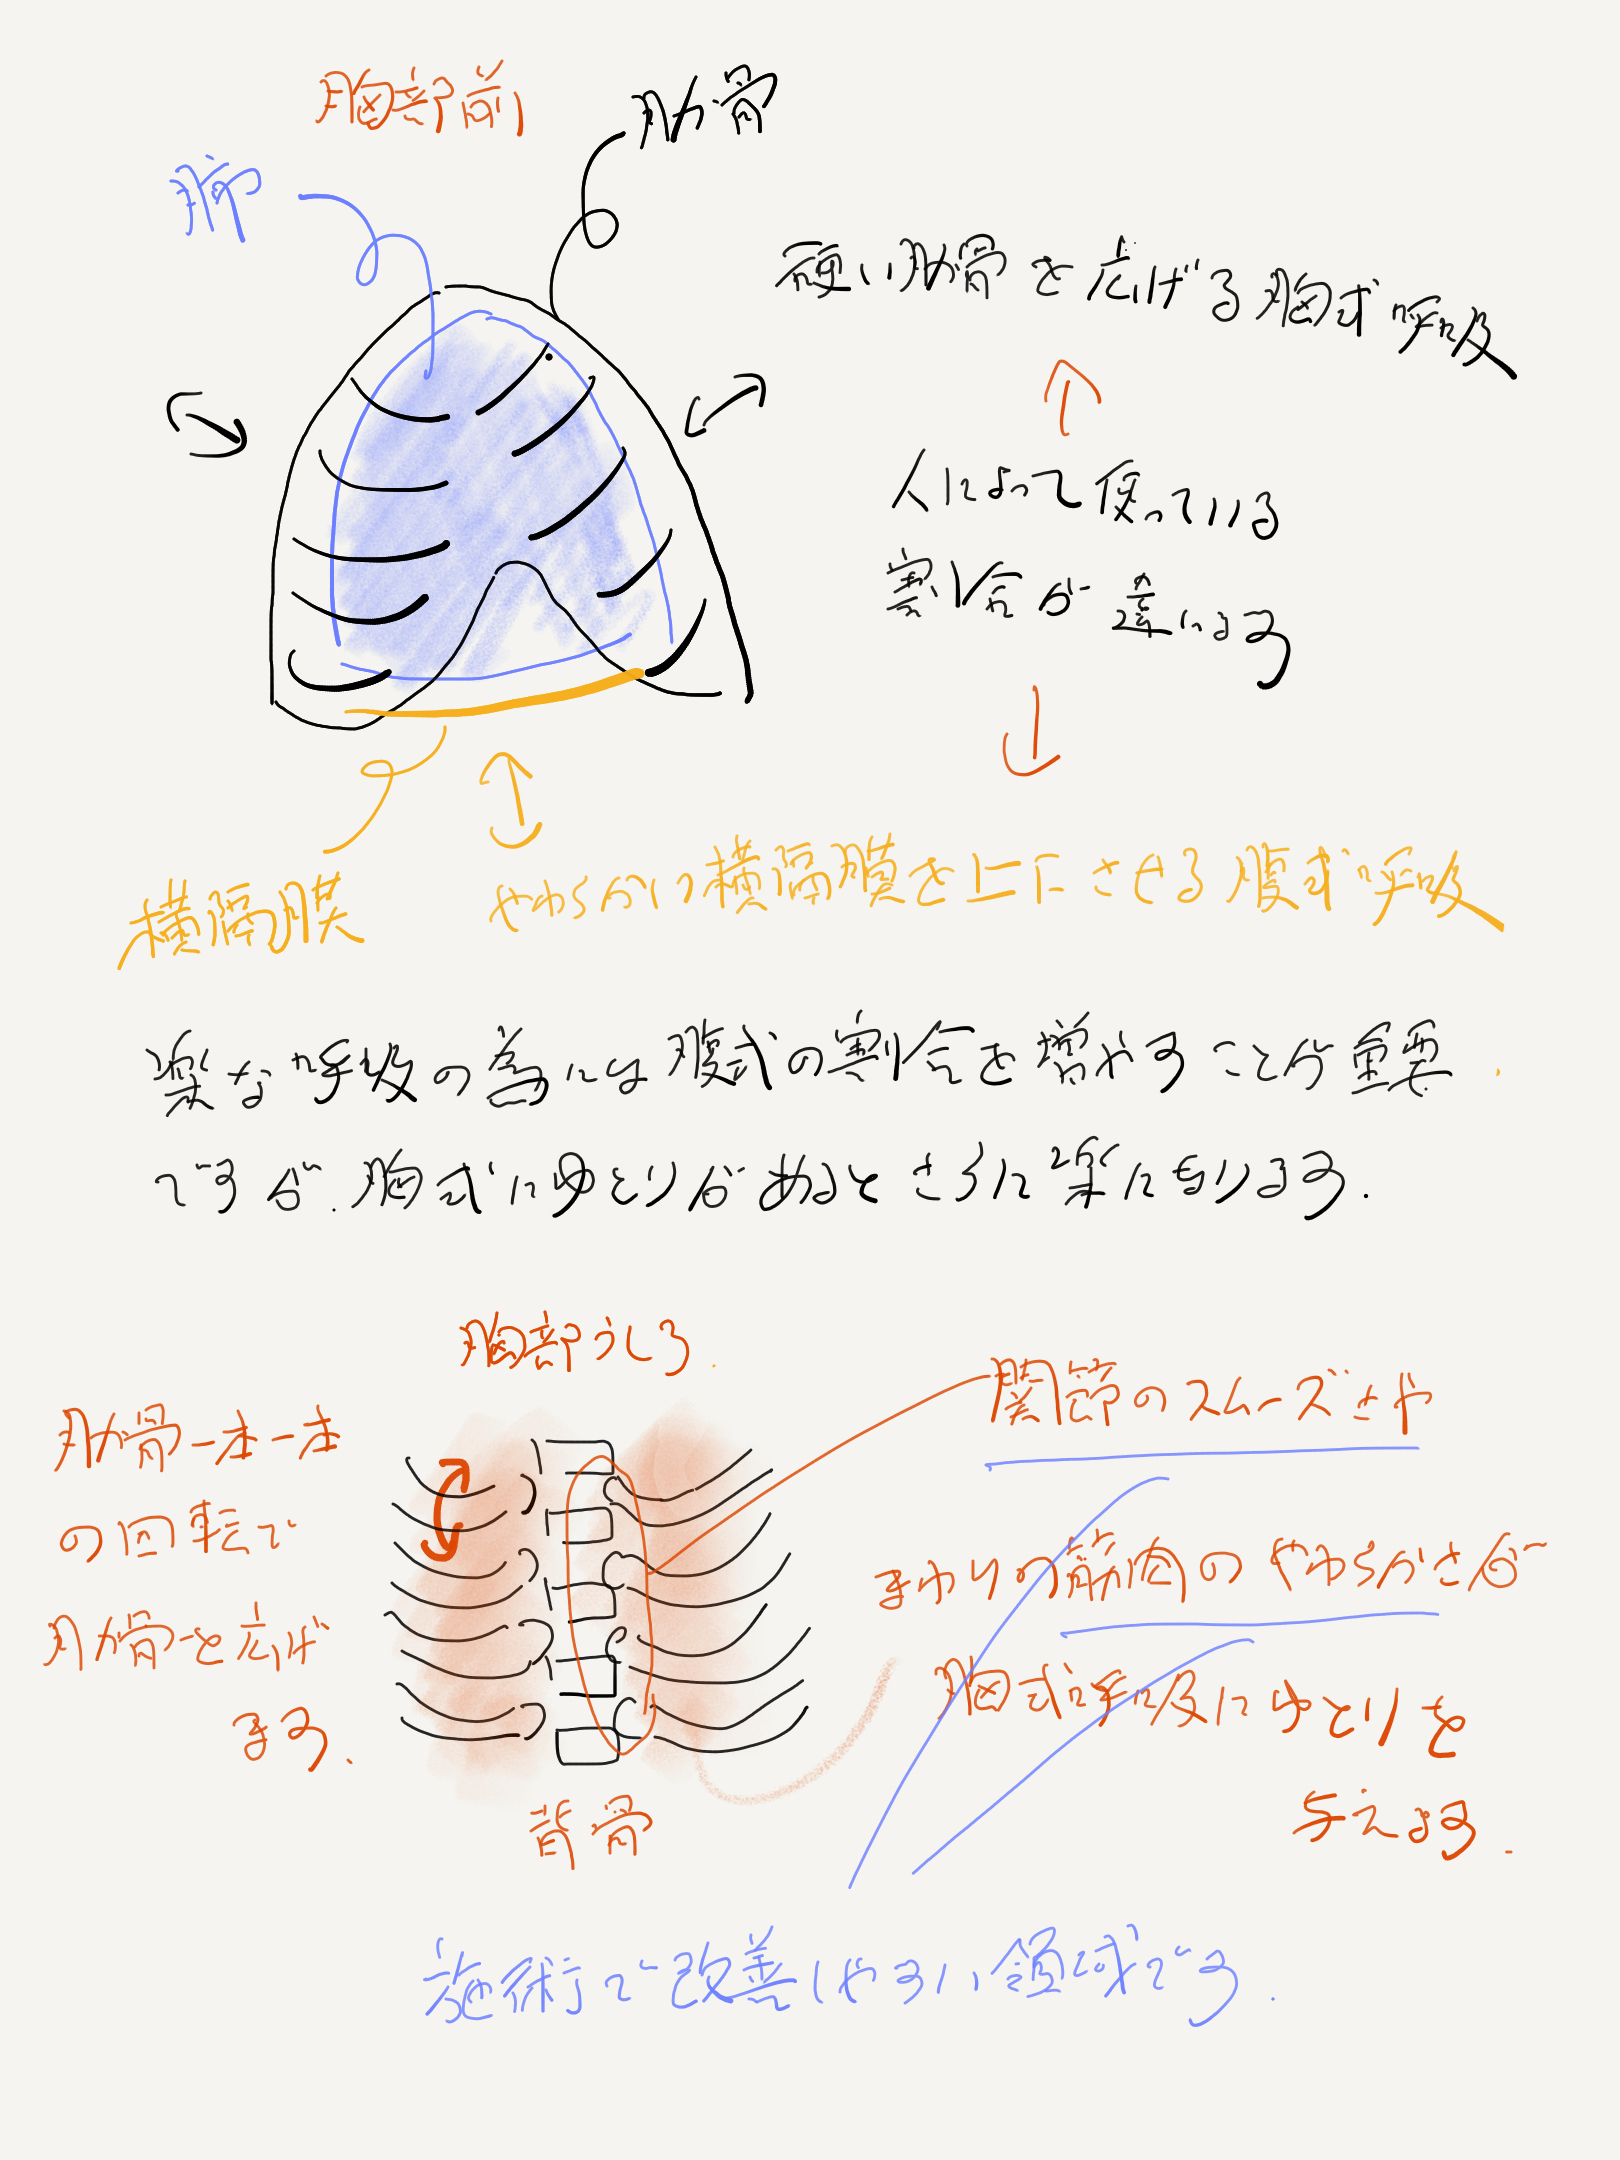 胸部前
肋骨
肺
硬い肋骨を広げる胸式呼吸
人によって使っている
割合が違います
横隔膜
やわらかい横隔膜を上下させる腹式呼吸
楽な呼吸の為には腹式の割合を増やすことが重要
ですが、胸式にゆとりがあるとさらに楽になります.
胸部うしろ
肋骨一本一本
の回転で
肋骨を広げ
ます.
関節のスムーズさや
まわりの筋肉のやわらかさが
胸式呼吸にゆとりを
与えます.
背骨
施術で改善しやすい領域です.